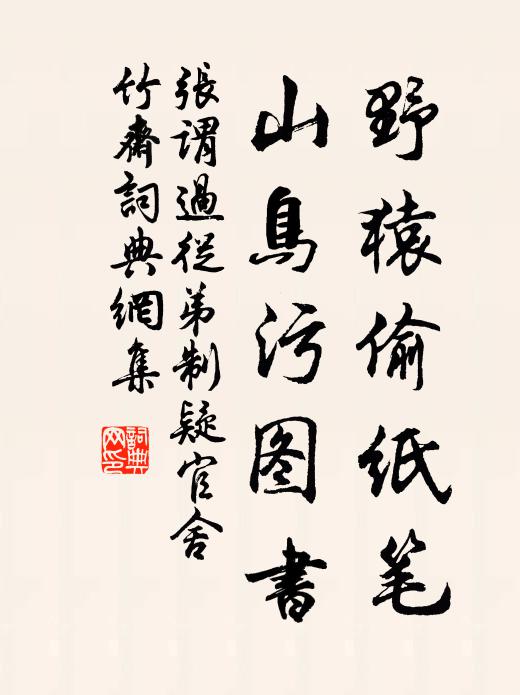 野猿偷纸笔
山鳥污图書
張谓過從弟制疑官舍
竹齋詞典網集
詞典网印